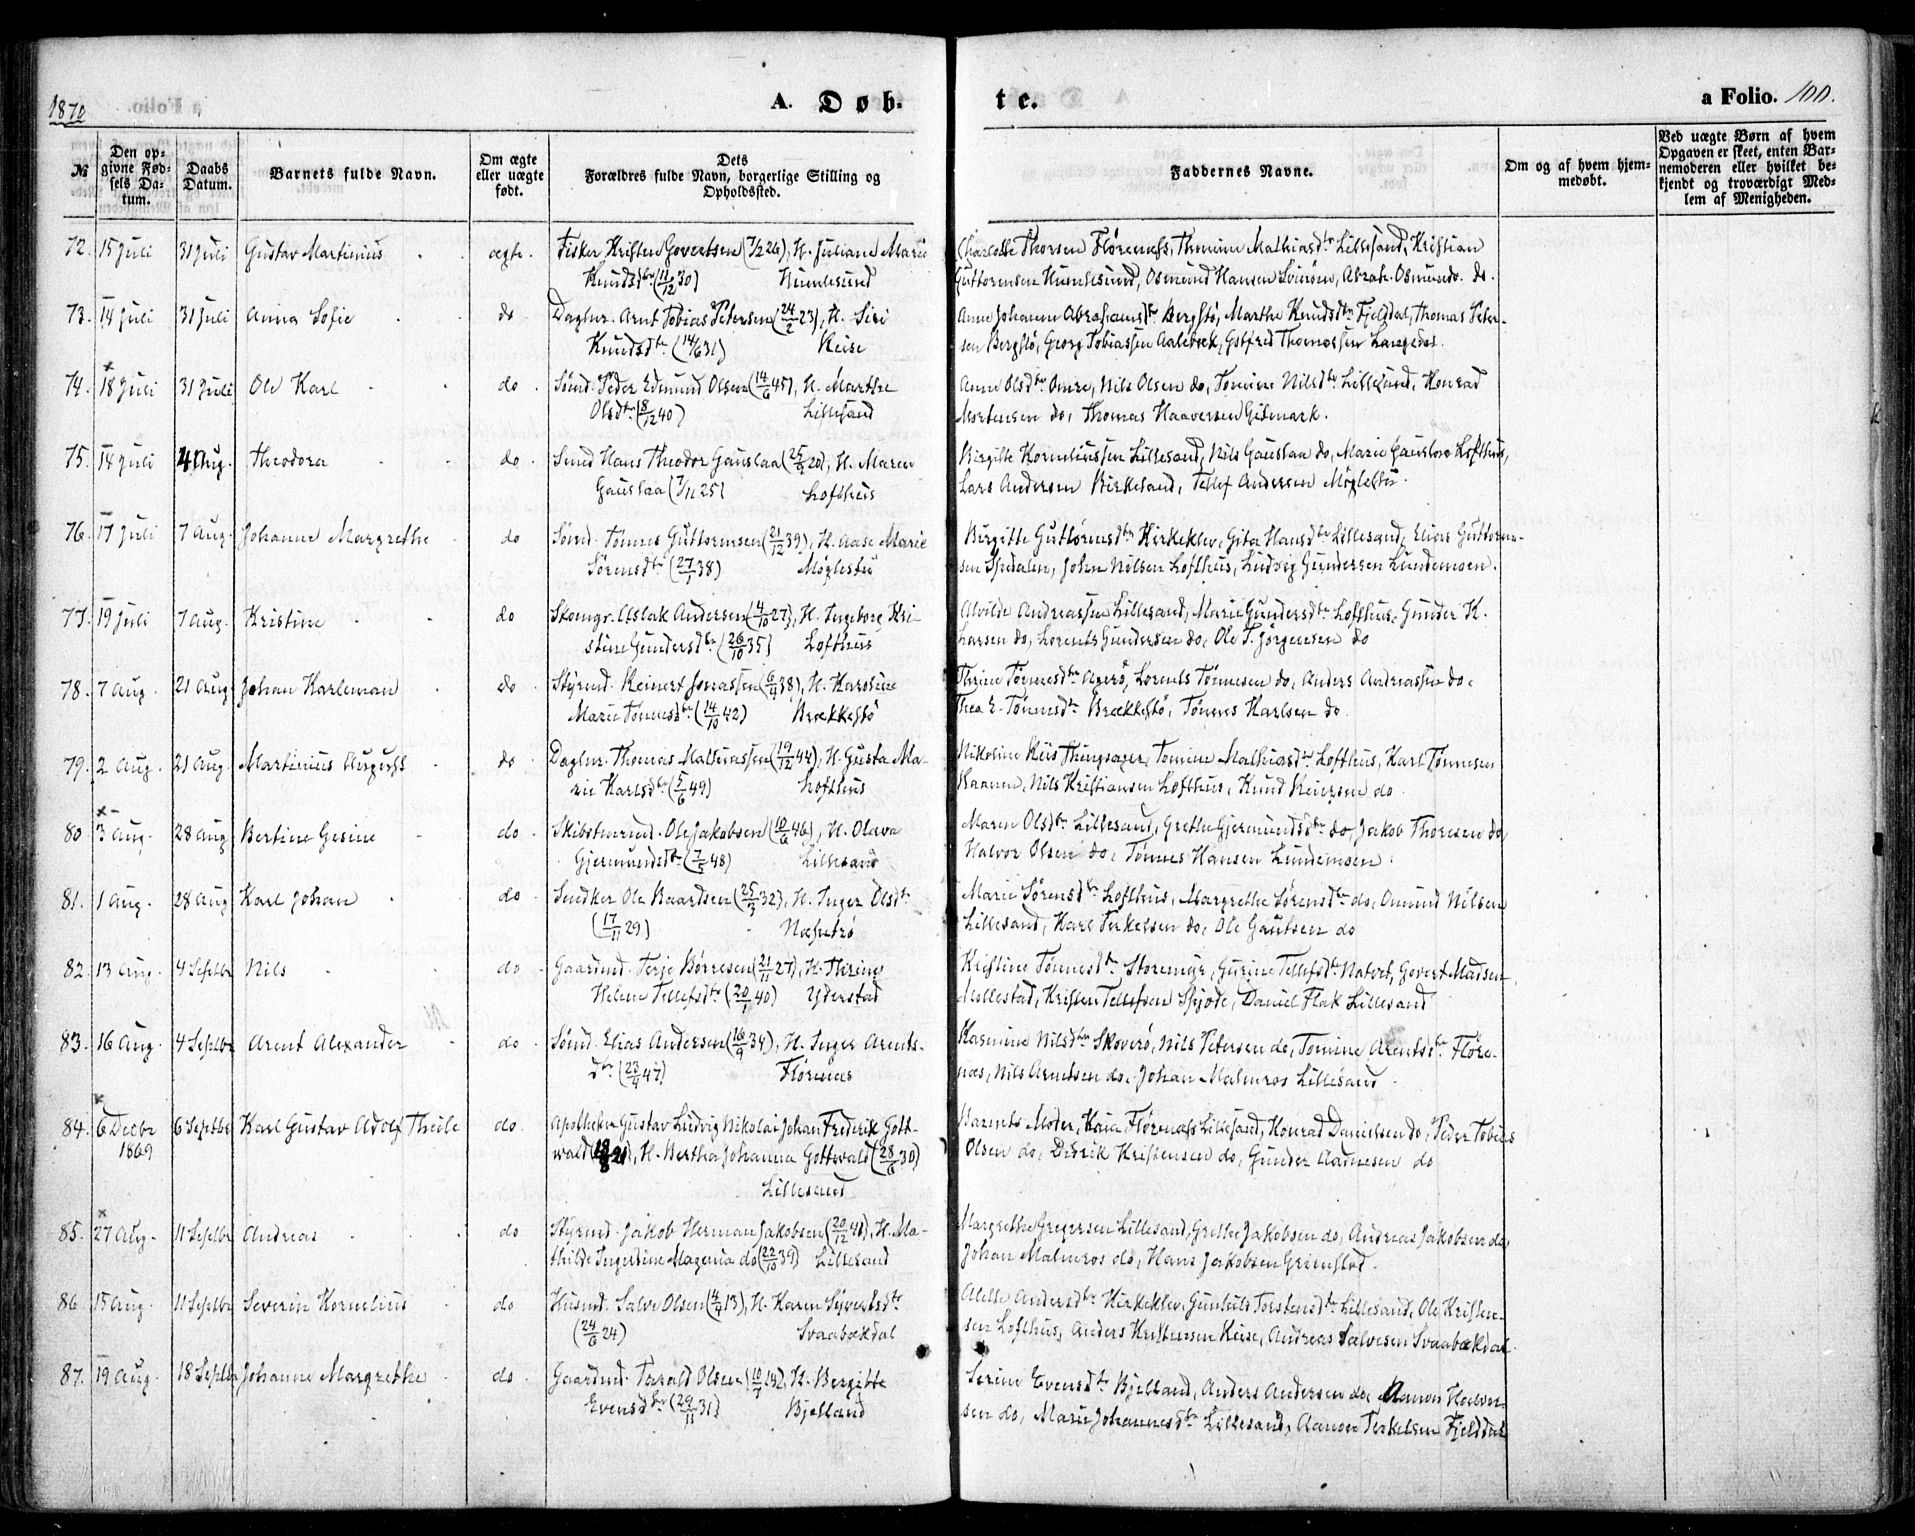 1870
A. Døb-
te.
a Folio. 100.
№
Den op-
givne Fød-
sels Da-
tum.
Daabs
Datum.
Barnets fulde Navn.
Om ægte
eller uægte
født.
Dets
Forældres fulde Navn, borgerlige Stilling og
Opholdssted.
Faddernes Navne.
Om og af hvem hjem-
medøbt.
Ved uægte Børn af hvem
Opgaven er skeet, enten Bar-
nemoderen eller hvilket be-
kjendt og troværdigt Med-
lem af Menigheden.
72. 15 Juli 31 Juli Gustav Martinius ægte. Fisker Kristen Govertsen (7/12 26), H. Juliane Marie
Knudsdtr (11/12 30) Humlesund
Charlotte Thorsen Flørenæs, Thomine Mathiasdtr Lillesand, Kristian
Guttormsen Humlesund, Osmund Hansen, Abrah. Osmunds. do.
73. 14 Juli 31 Juli Anna Sofie do Daglnr. Arnt Tobias Petersen (24/2 23), H. Siri
Knudsdtr (14/6 31) Keise
Anne Johanne Abrahamsdtr Bergstø, Marthe Knudsdtr Fjeldal, Thomas Peter-
sen Bergstø, Georg Tobiassen Aalebæk, Gotfred Thomassen Langedal.
74. 18 Juli 31 Juli Ole Karl do Sømd. Peder Edmund Olsen (14/6 45), H. Marthe
Olsdtr (8/12 40) Lillesand
Anne Olsdtr Omre, Nils Olsen do, Tomine Nilsdtr Lillesand, Konrad
Mortensen do, Thomas Haaversen Gitmark.
75. 14 Juli 4 Aug. Theodora do Smed Hans Theodor Gauslaa (25/3 20), H. Maren
Gauslaa (7/11 25) Lofthus
Birgitte Korneliussen Lillesand, Nils Gauslaa do, Marie Gauslaa Lofthus,
Lars Andersen Birkeland, Tellef Andersen Møglestu.
76. 17 Juli 7 Aug. Johanne Margrethe do Sømd. Tønnes Guttormsen (21/12 39), H. Aase Marie
Sørensdtr (27/1 38) Møglestu
Birgitte Guttormsdtr Kirkeklev, Gita Hansdtr Lillesand, Elias Guttorm-
sen Spedalen, John Nilsen Lofthus, Ludvig Gundersen Lundemoen.
77. 19 Juli 7 Aug. Kristine do Skomgr. Aslak Andersen (4/10 27), H. Ingeborg Kri-
stine Gundersdtr (26/10 35) Lofthus
Alvilde Andreassen Lillesand, Marie Gundersdtr Lofthus, Gunder K.
Larsen do, Lorents Gundersen do, Ole T. Jørgensen do
78. 7 Aug. 21 Aug. Johan Karleman do Styrmd. Reinert Jonassen (6/4 38), H. Karoline
Marie Tønnesdtr (14/10 42) Brækkestø
Thrine Tønnesdtr Agerø, Lorents Tønnesen do, Anders Andreassen do.
Thea E. Tønnesdtr Brækkestø, Tønnes Karlsen do
79. 2 Aug. 21 Aug. Martinius August do Daglnr. Thomas Mathiassen (19/12 44), H. Gusta Ma-
rie Karlsdtr (5/6 49) Lofthus
Nikoline Reis Thingsager, Tomine Mathiasdtr Lofthus, Karl Tønnesen
Raanen, Nils Kristiansen Lofthus, Knud Reiersen do
80. 3 Aug. 28 Aug Bertine Gesine do Skibstmrmd. Ole Jakobsen (10/6 46), H. Olava
Gjermundsdtr (7/5 48) Lillesand
Maren Olsdtr Lillesand, Grethe Gjermundsdtr do, Jakob Thoresen do
Halvor Olsen do, Tønnes Hansen Lundemoen.
81. 1 Aug. 28 Aug Karl Johan do Snedker Ole Baardsen (25/3 32), H. Inger Olsdtr
(17/11 29)
Marie Sørensdtr Lofthus, Margrethe Sørensdtr do, Omund Nilsen
Lillesand, Karl Terkelsen do, Ole Gautsen do
82. 13 Aug. 4 Septbr Nils do Gaardmd. Terje Børresen (21/11 27), H. Thrine
Helene Tellefsdtr (20/1 40) Yderstad
Kristine Tønnesdtr Storemyr, Gurine Tellefsdtr Natvet, Govert Madsen
Mellestad, Kristen Tellefsen, Daniel Flak Lillesand
83. 16 Aug. 4 Septbr Arent Alexander do Sømd. Elias Andersen (16/9 34), H. Inger Arents-
dtr (23/4 47) Flørenæs
Rasmine Nilsdtr Skoverø, Nils Petersen do, Tomine Arentsdtr Fløre-
næs, Nils Arentsen do, Johan Malmros Lillesand
84. 6 Decbr 6 Septbr Karl Gustav Adolf Theile do Apotheker Gustav Ludvig Nikolai Johan Frederik Gott-
1869
wald, H. Bertha Johanna Gottwald (28/6 30)
Lillesand
Barnets Moder, Kaia Flørenæs Lillesand, Konrad Danielsen do, Peder Tobias
Olsen do, Didrik Kristensen do, Gunder Aadnesen do
85. 27 Aug. 11 Septbr Andreas do Styrmd. Jakob Herman Jakobsen (20/12 41), H. Ma-
thilde Ingertine Magena do (22/10 39) Lillesand
Margrethe Gregersen Lillesand, Grethe Jakobsen do, Andreas Jakobsen do,
Johan Malmros do, Hans Jakobsen Grimstad.
86. 15 Aug. 11 Septbr Severin Kornelius do Husmd. Salve Olsen (4/4 13), H. Karen Sivertsdtr
(24/6 24) Svaabækdal
Aleth Andersdtr Kirkeklev, Gunhild Torstensdtr Lillesand, Ole Kristen-
sen Lofthus, Anders Kristensen Keise, Andreas Salvesen Svaabækdal.
87. 19 Aug. 18 Septbr Johanne Margrethe do. Gaardmd. Tarald Olsen, H. Bergitte
Evensdtr (29/11 31) Bjelland
Serine Evensdtr Bjelland, Anders Andersen do, Aanon Halvor-
sen do, Marie Johannesdtr Lillesand, Aanon Terkelsen Fjelddal